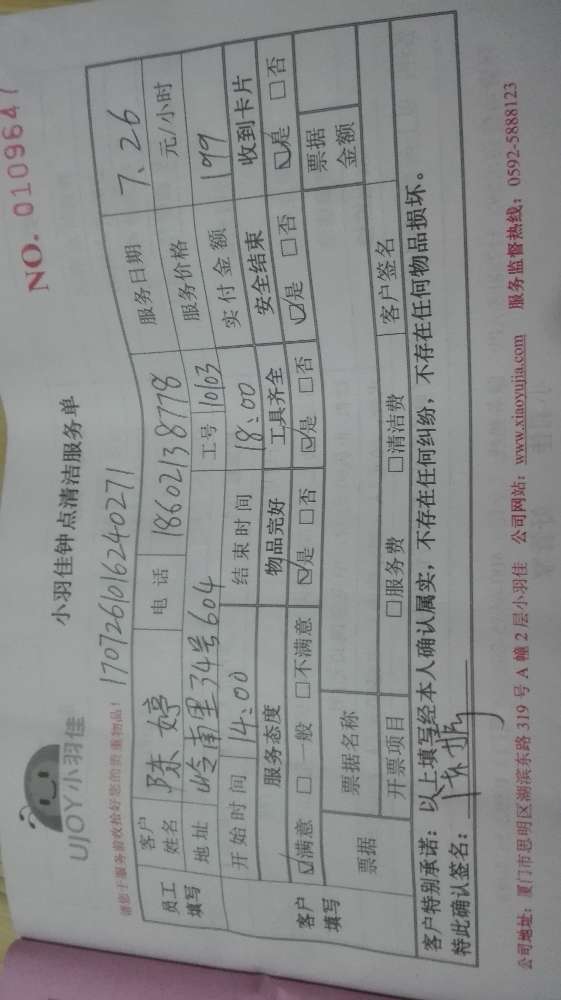 NO. 0109647
UJOY小羽佳
小羽佳钟点清洁服务单
请您于服务前收拾好您的贵重物品！ 170726101624０271
员工填写 客户姓名 陈婷 电话 18602138778 服务日期 7、26
地址 岭南里34号604 工号 10103 服务价格 元/小时
开始时间 14:00 结束时间 18:00 实付金额 199
客户填写 服务态度 物品完好 工具齐全 安全结束 收到卡片
☑满意 □一般 □不满意 ☑是 □否 ☑是 □否 ☑是 □否 ☑是 □否
票据 票据名称 票据金额
开票项目 □服务费 □清洁费 客户签名
客户特别承诺：以上填写经本人确认属实，不存在任何纠纷，不存在任何物品损坏。
特此确认签名：陈婷
公司地址：厦门市思明区湖滨东路 319 号 A 幢 2 层小羽佳 公司网站：www.xiaoyujia.com 服务监督热线：0592-5888123